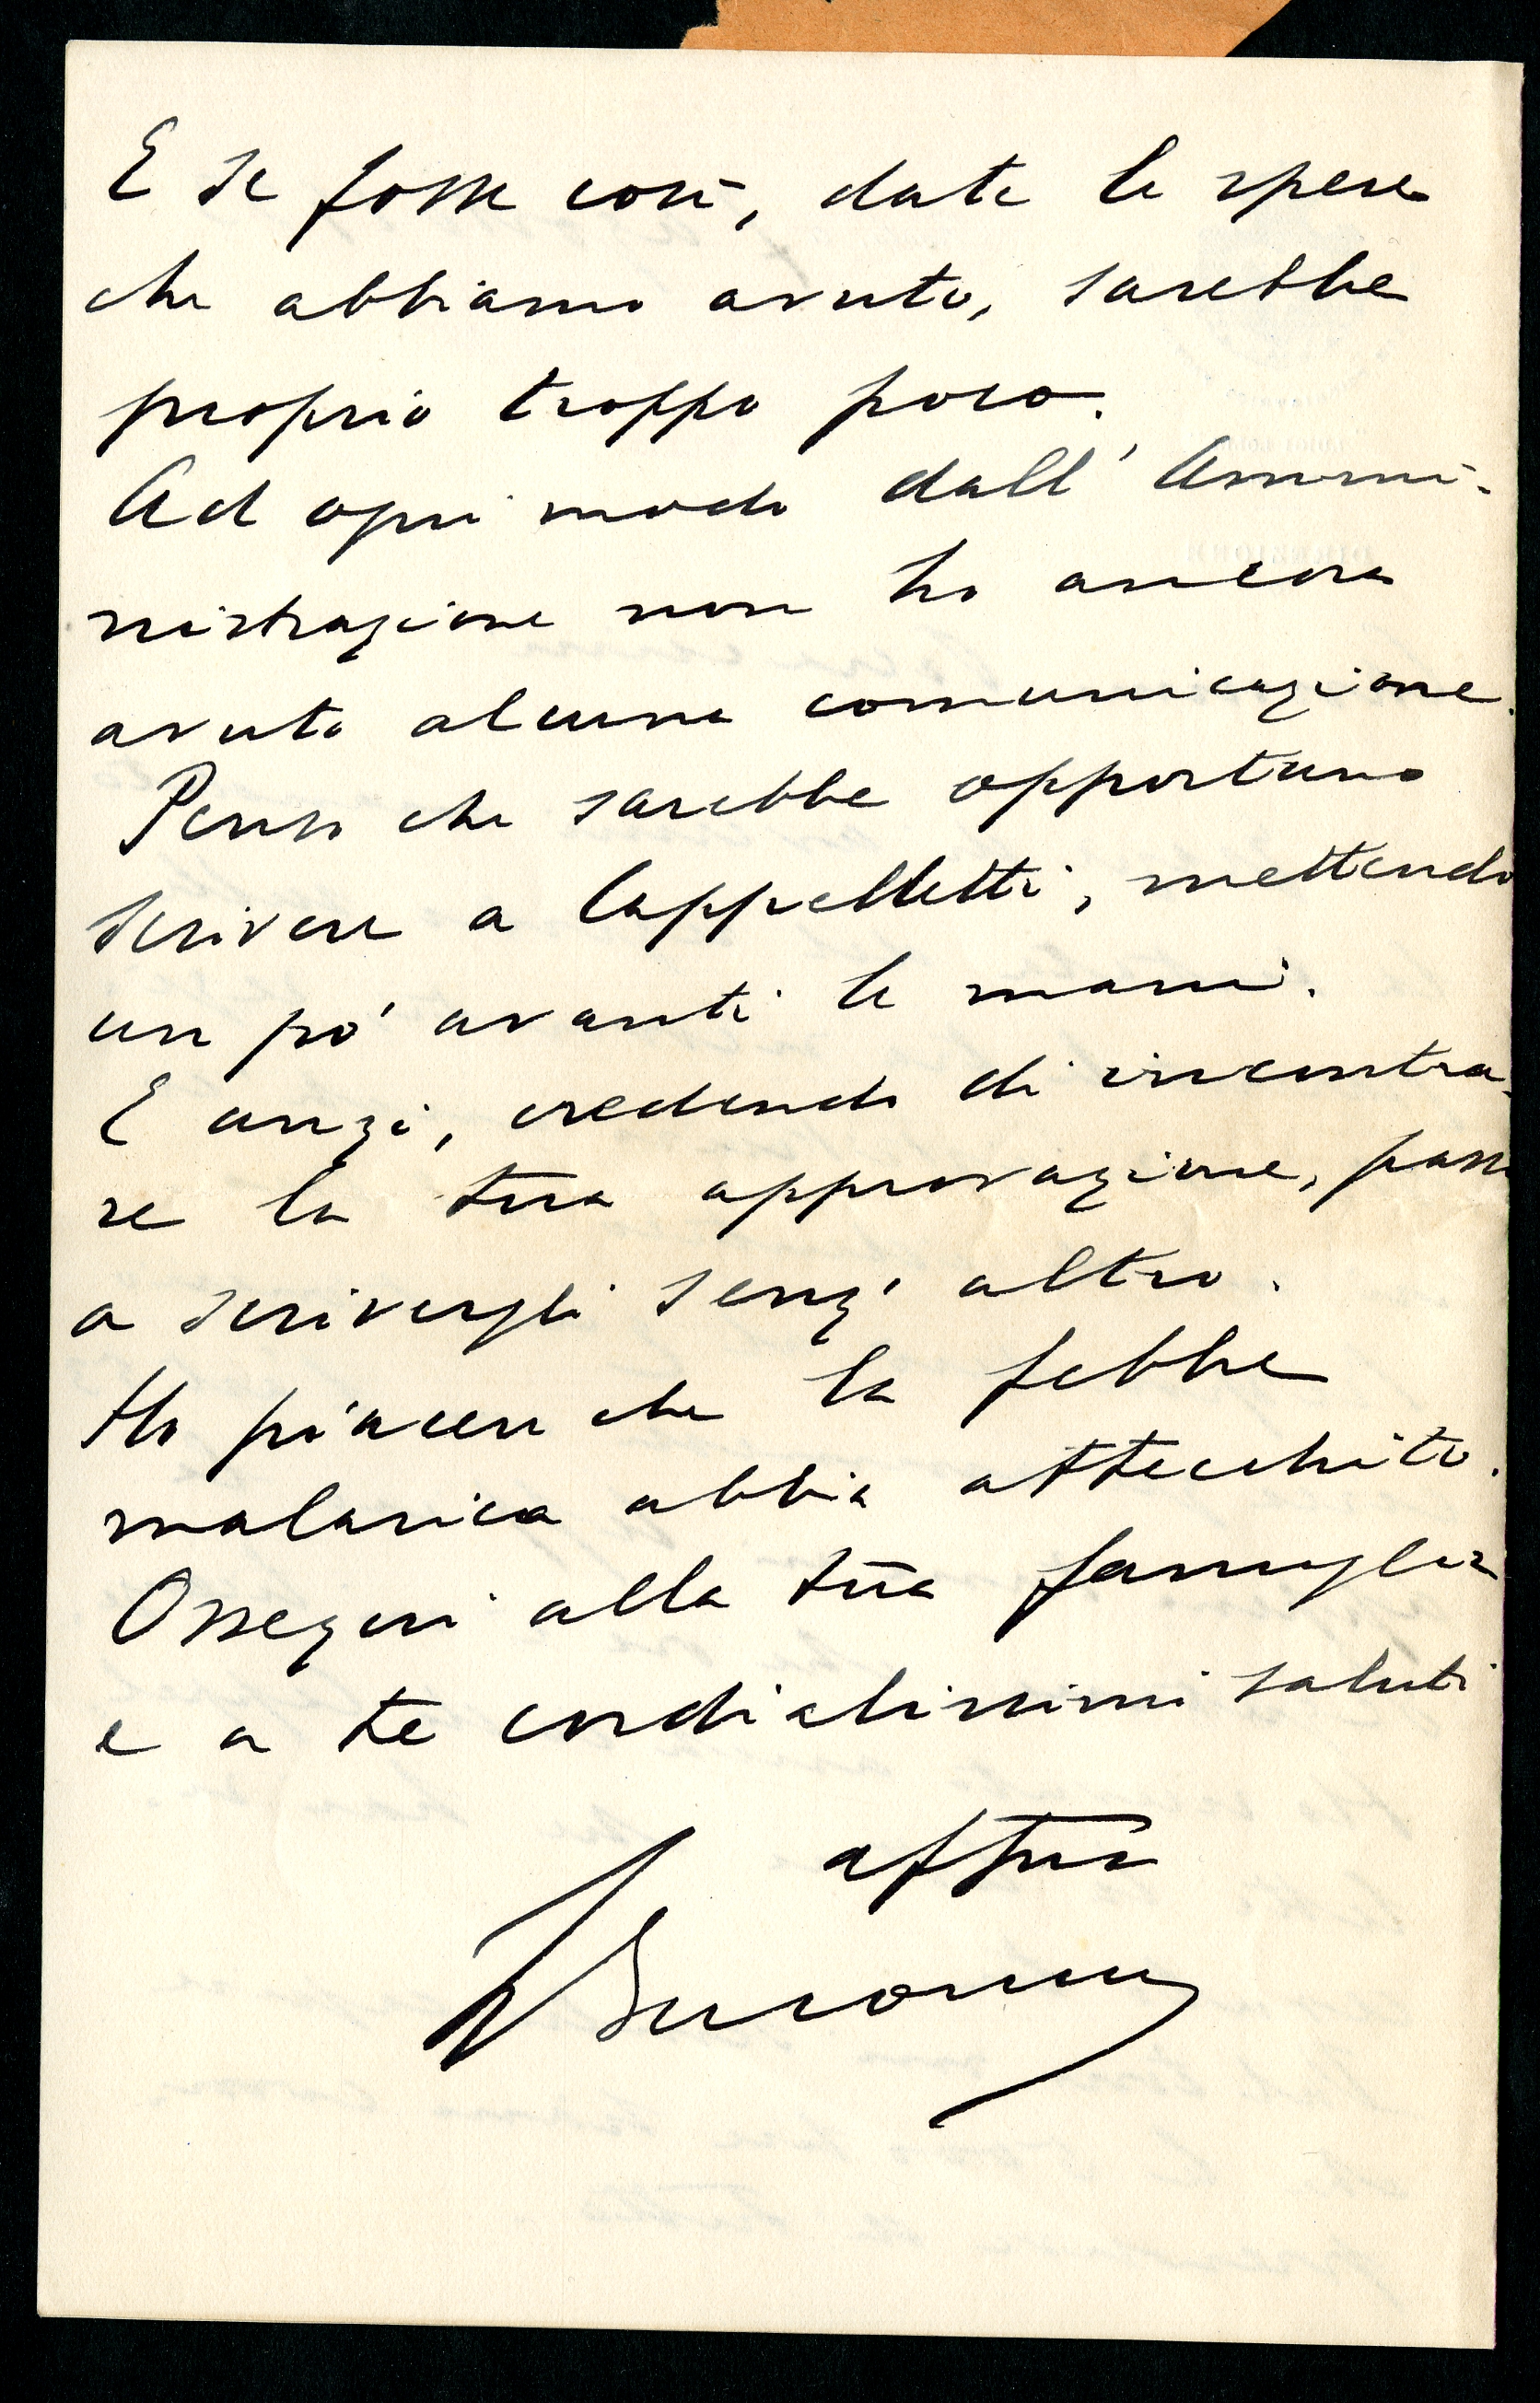 E se fosse così, date le spese
che abbiamo avuto, sarebbe
proprio troppo poco.
Ad ogni modo dall' Ammi-
nistrazione non ho ancora
avuto alcuna comunicazione.
Penso che sarebbe opportuno
scrivere a Cappelletti, mettendo
un pò avanti le mani.
E anzi, credendo di incontra-
re la tua approvazione, passo
a scrivergli senz' altro.
Ho piacere che la febbre
malarica abbia attecchito.
Ossequi alla tua famiglia
e a te cordialissimi saluti
aff.mo